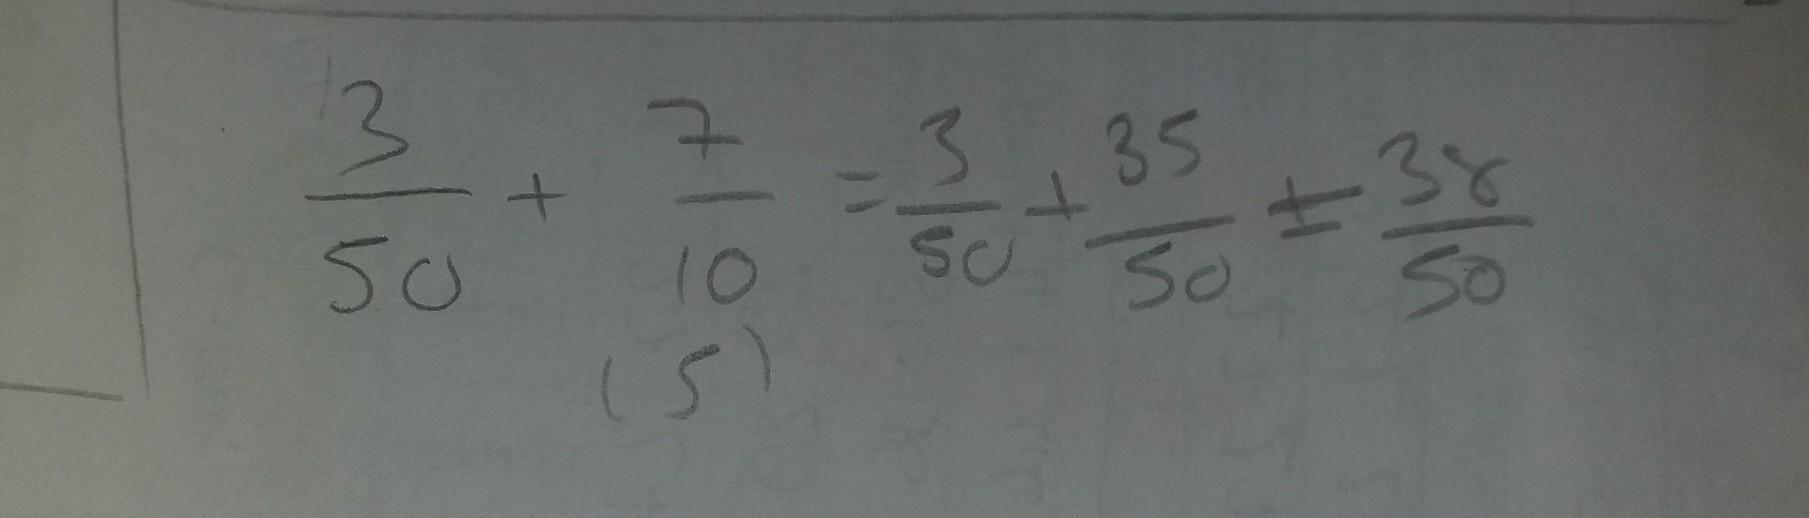 3/50 + 7/10 = 3/50 + 35/50 = 38/50
(5)